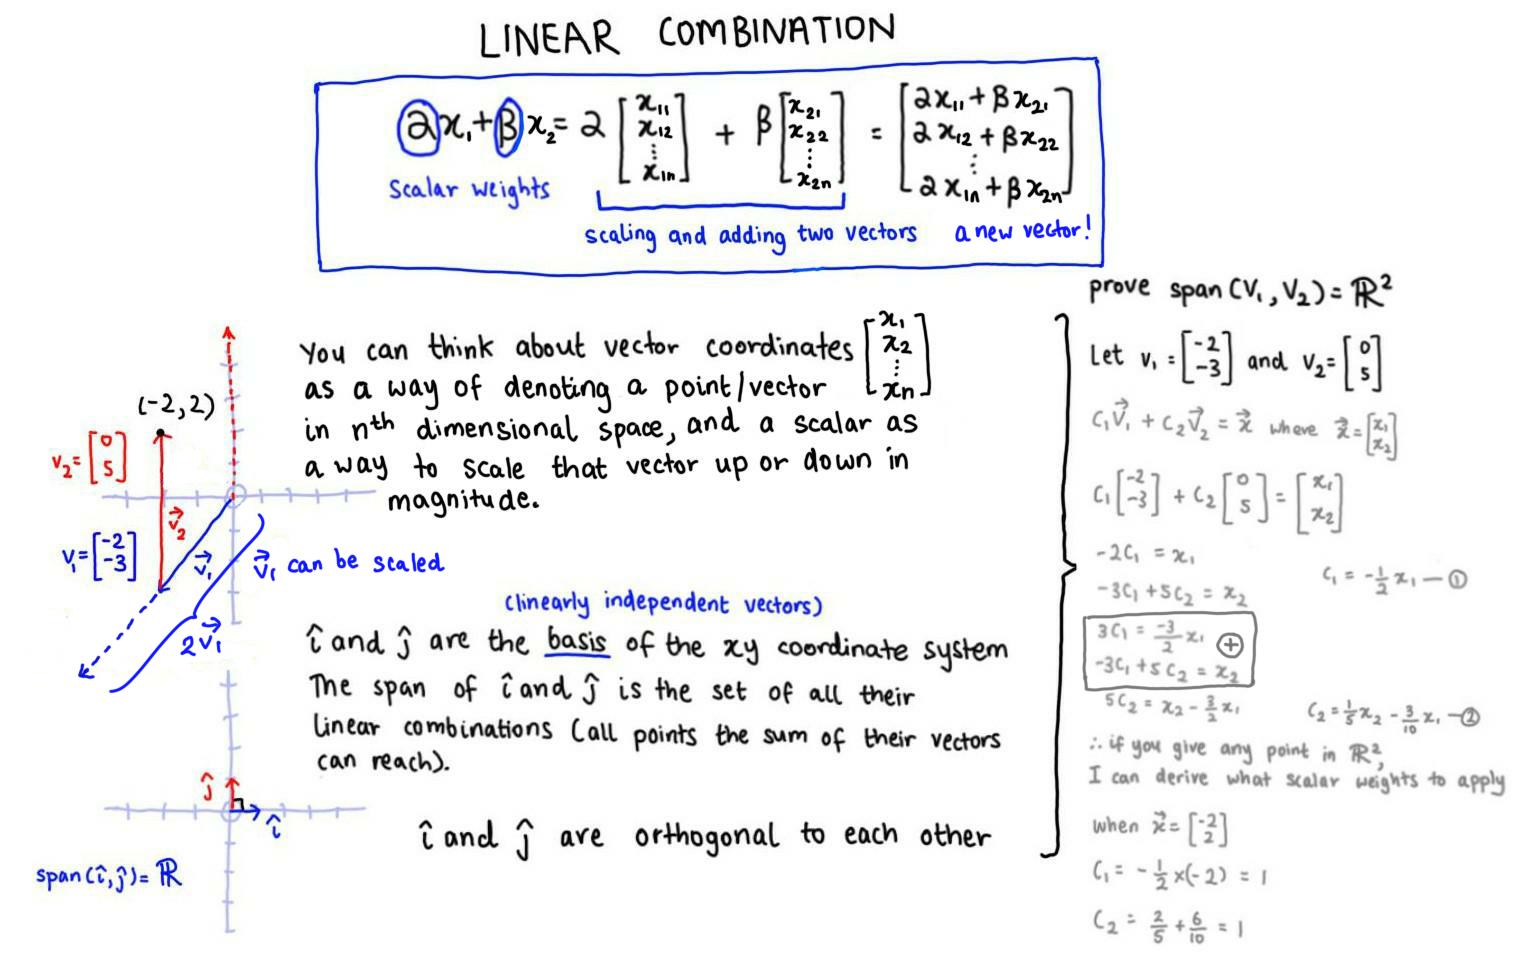 LINEAR COMBINATION
2x₁ + βx₂ = 2 [x₁₁ x₁₂ ⋮ x₁ₙ] + β [x₂₁ x₂₂ ⋮ x₂ₙ] = [2x₁₁ + βx₂₁ 2x₁₂ + βx₂₂ ⋮ 2x₁ₙ + βx₂ₙ]
scalar weights
scaling and adding two vectors
a new vector!
You can think about vector coordinates [x₁ x₂ ⋮ xₙ]
as a way of denoting a point/vector
in nᵗʰ dimensional space, and a scalar as
a way to scale that vector up or down in
magnitude.
(-2,2)
v₂ = [0 5]
v⃗₂
v₁ = [-2 -3]
v⃗₁
v⃗₁ can be scaled
2v⃗₁
(linearly independent vectors)
î and ĵ are the basis of the xy coordinate system
The span of î and ĵ is the set of all their
linear combinations (all points the sum of their vectors
can reach).
ĵ
î
î and ĵ are orthogonal to each other
span(î,ĵ) = ℝ
prove span(v₁, v₂) = ℝ²
Let v₁ = [-2 -3] and v₂ = [0 5]
C₁v⃗₁ + C₂v⃗₂ = x⃗ where x⃗ = [x₁ x₂]
C₁ [-2 -3] + C₂ [0 5] = [x₁ x₂]
-2C₁ = x₁
C₁ = -½x₁ — ①
-3C₁ + 5C₂ = x₂
3C₁ = -3/2 x₁ ⊕
-3C₁ + 5C₂ = x₂
5C₂ = x₂ - 3/2 x₁
C₂ = 1/5 x₂ - 3/10 x₁ — ②
∴ if you give any point in ℝ²,
I can derive what scalar weights to apply
when x⃗ = [-2 2]
C₁ = -½ × (-2) = 1
C₂ = 2/5 + 6/10 = 1